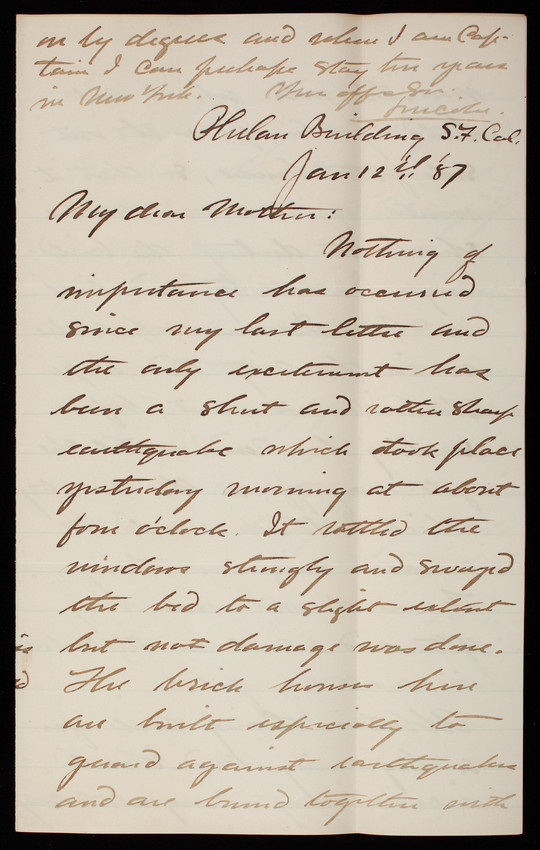 on by degrees and when I am Cap-
tain I can perhaps stay ten years
in New York. Your aff. Son.
Lincoln.
Phelan Building S.F. Cal.
Jan 12th '87
My dear Mother:
Nothing of
importance has occurred
since my last letter and
the only excitement has
been a short and rather sharp
earthquake which took place
yesterday morning at about
four o'clock. It rattled the
windows strongly and swayed
the bed to a slight extent
but not damage was done.
The brick houses here
are built especially to
guard against earthquakes
and are bound together with